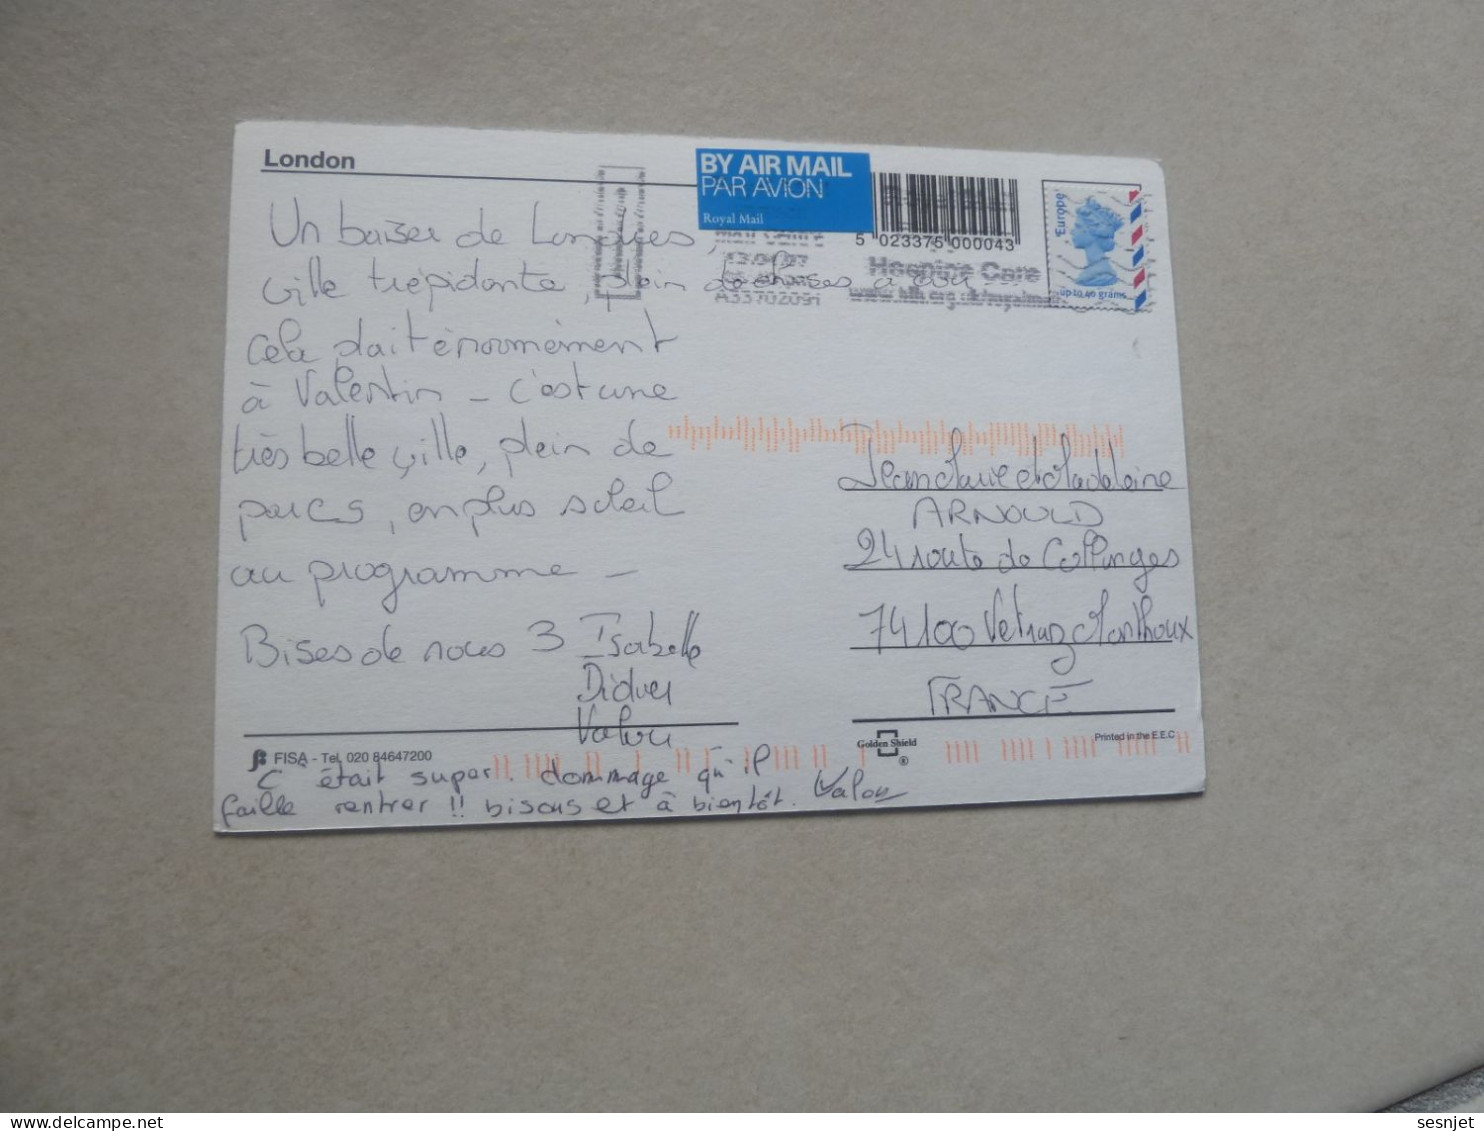 London
BY AIR MAIL
PAR AVION
Royal Mail
5 023375 000043
Europe
up to 40 grams
Hospice Care
A3370209
Un baiser de Londres,
ville trépidante, plein de choses à voir
cela plait énormément
à Valentin - c'est une
très belle ville, plein de
parcs, en plus soleil
au programme -
Bises de nous 3 Isabelle
Didier
Valou
Jean Marie et Madeleine
ARNOULD
24 route de Collonges
74100 Vetraz Monthoux
FRANCE
FISA - Tel. 020 84647200
Golden Shield
®
Printed in the E.E.C
C'était super. dommage qu'il
faille rentrer !! bisous et à bientôt. Valou
sesnjet